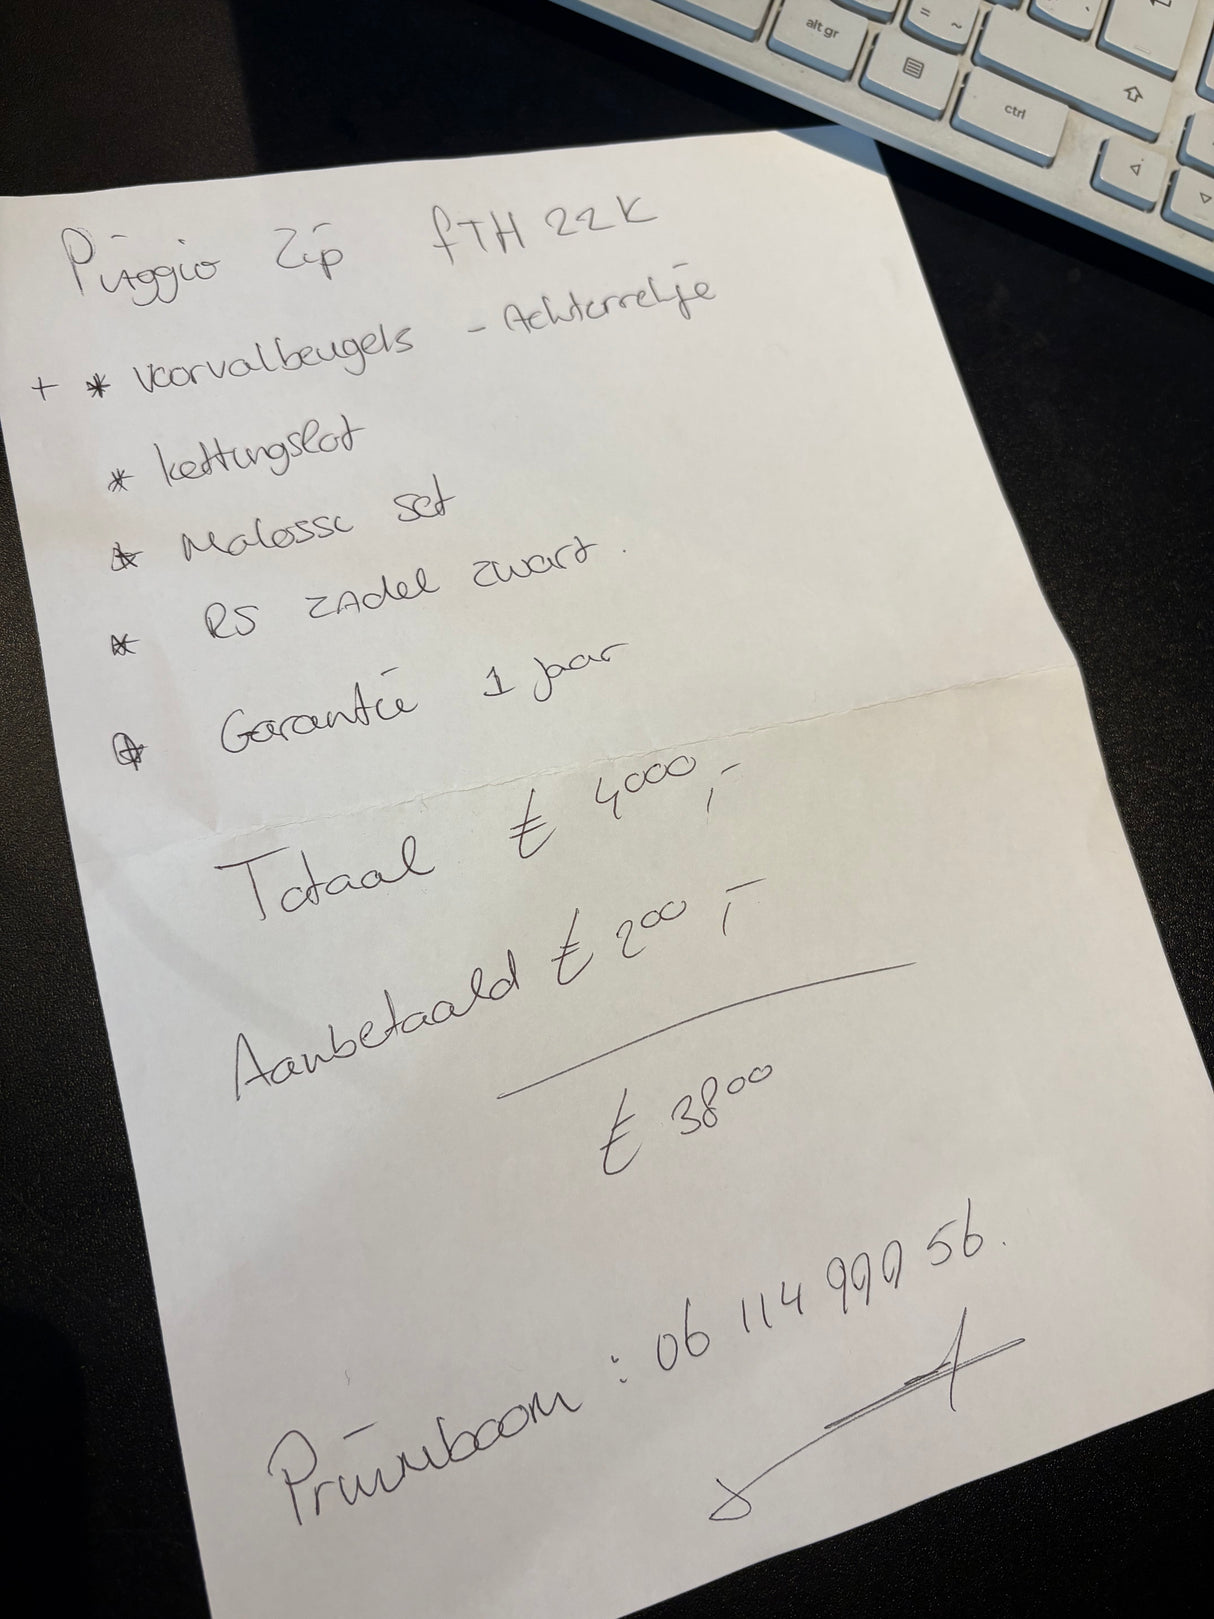 alt gr
ctrl
= ~
Piaggio Zip fTH 22K
+ * Voorvalbeugels - Achterrekje
* kettingslot
* Malossi set
* RS zadel zwart.
* Garantie 1 jaar
Totaal € 4000,-
Aanbetaald € 200,-
€ 3800
Pruimboom : 06 114 999 56.